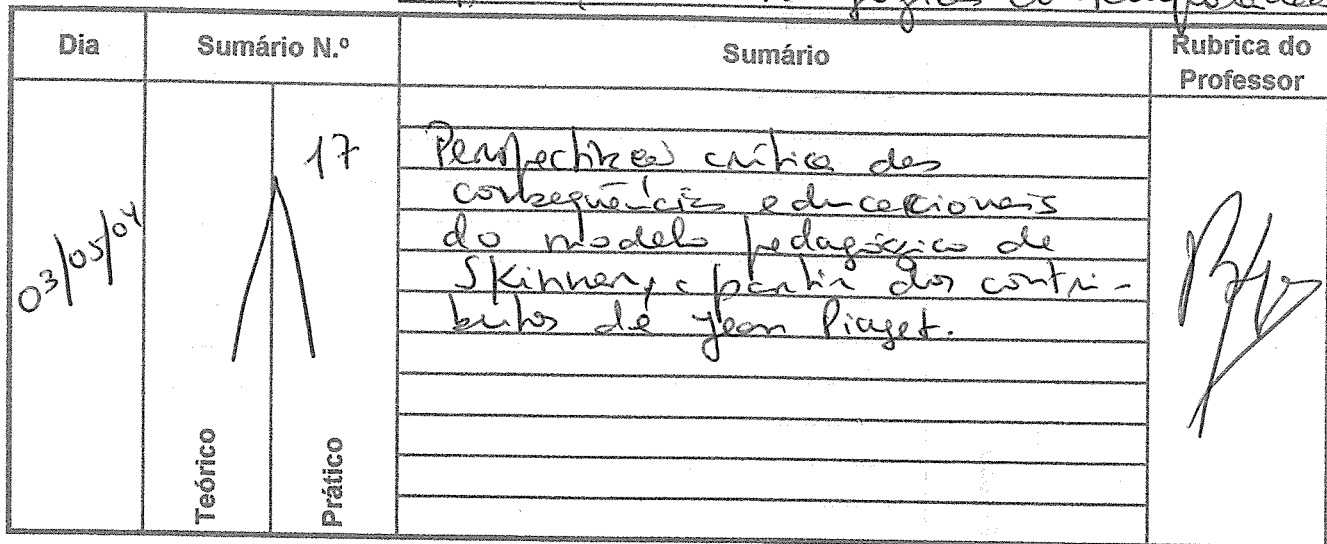 Dia
Sumário N.º
Sumário
Rubrica do
Professor
03/05/04
17
Perspectiva crítica das
consequências educacionais
do modelo pedagógico de
Skinner, a partir dos contri-
butos de Jean Piaget.
Teórico
Prático